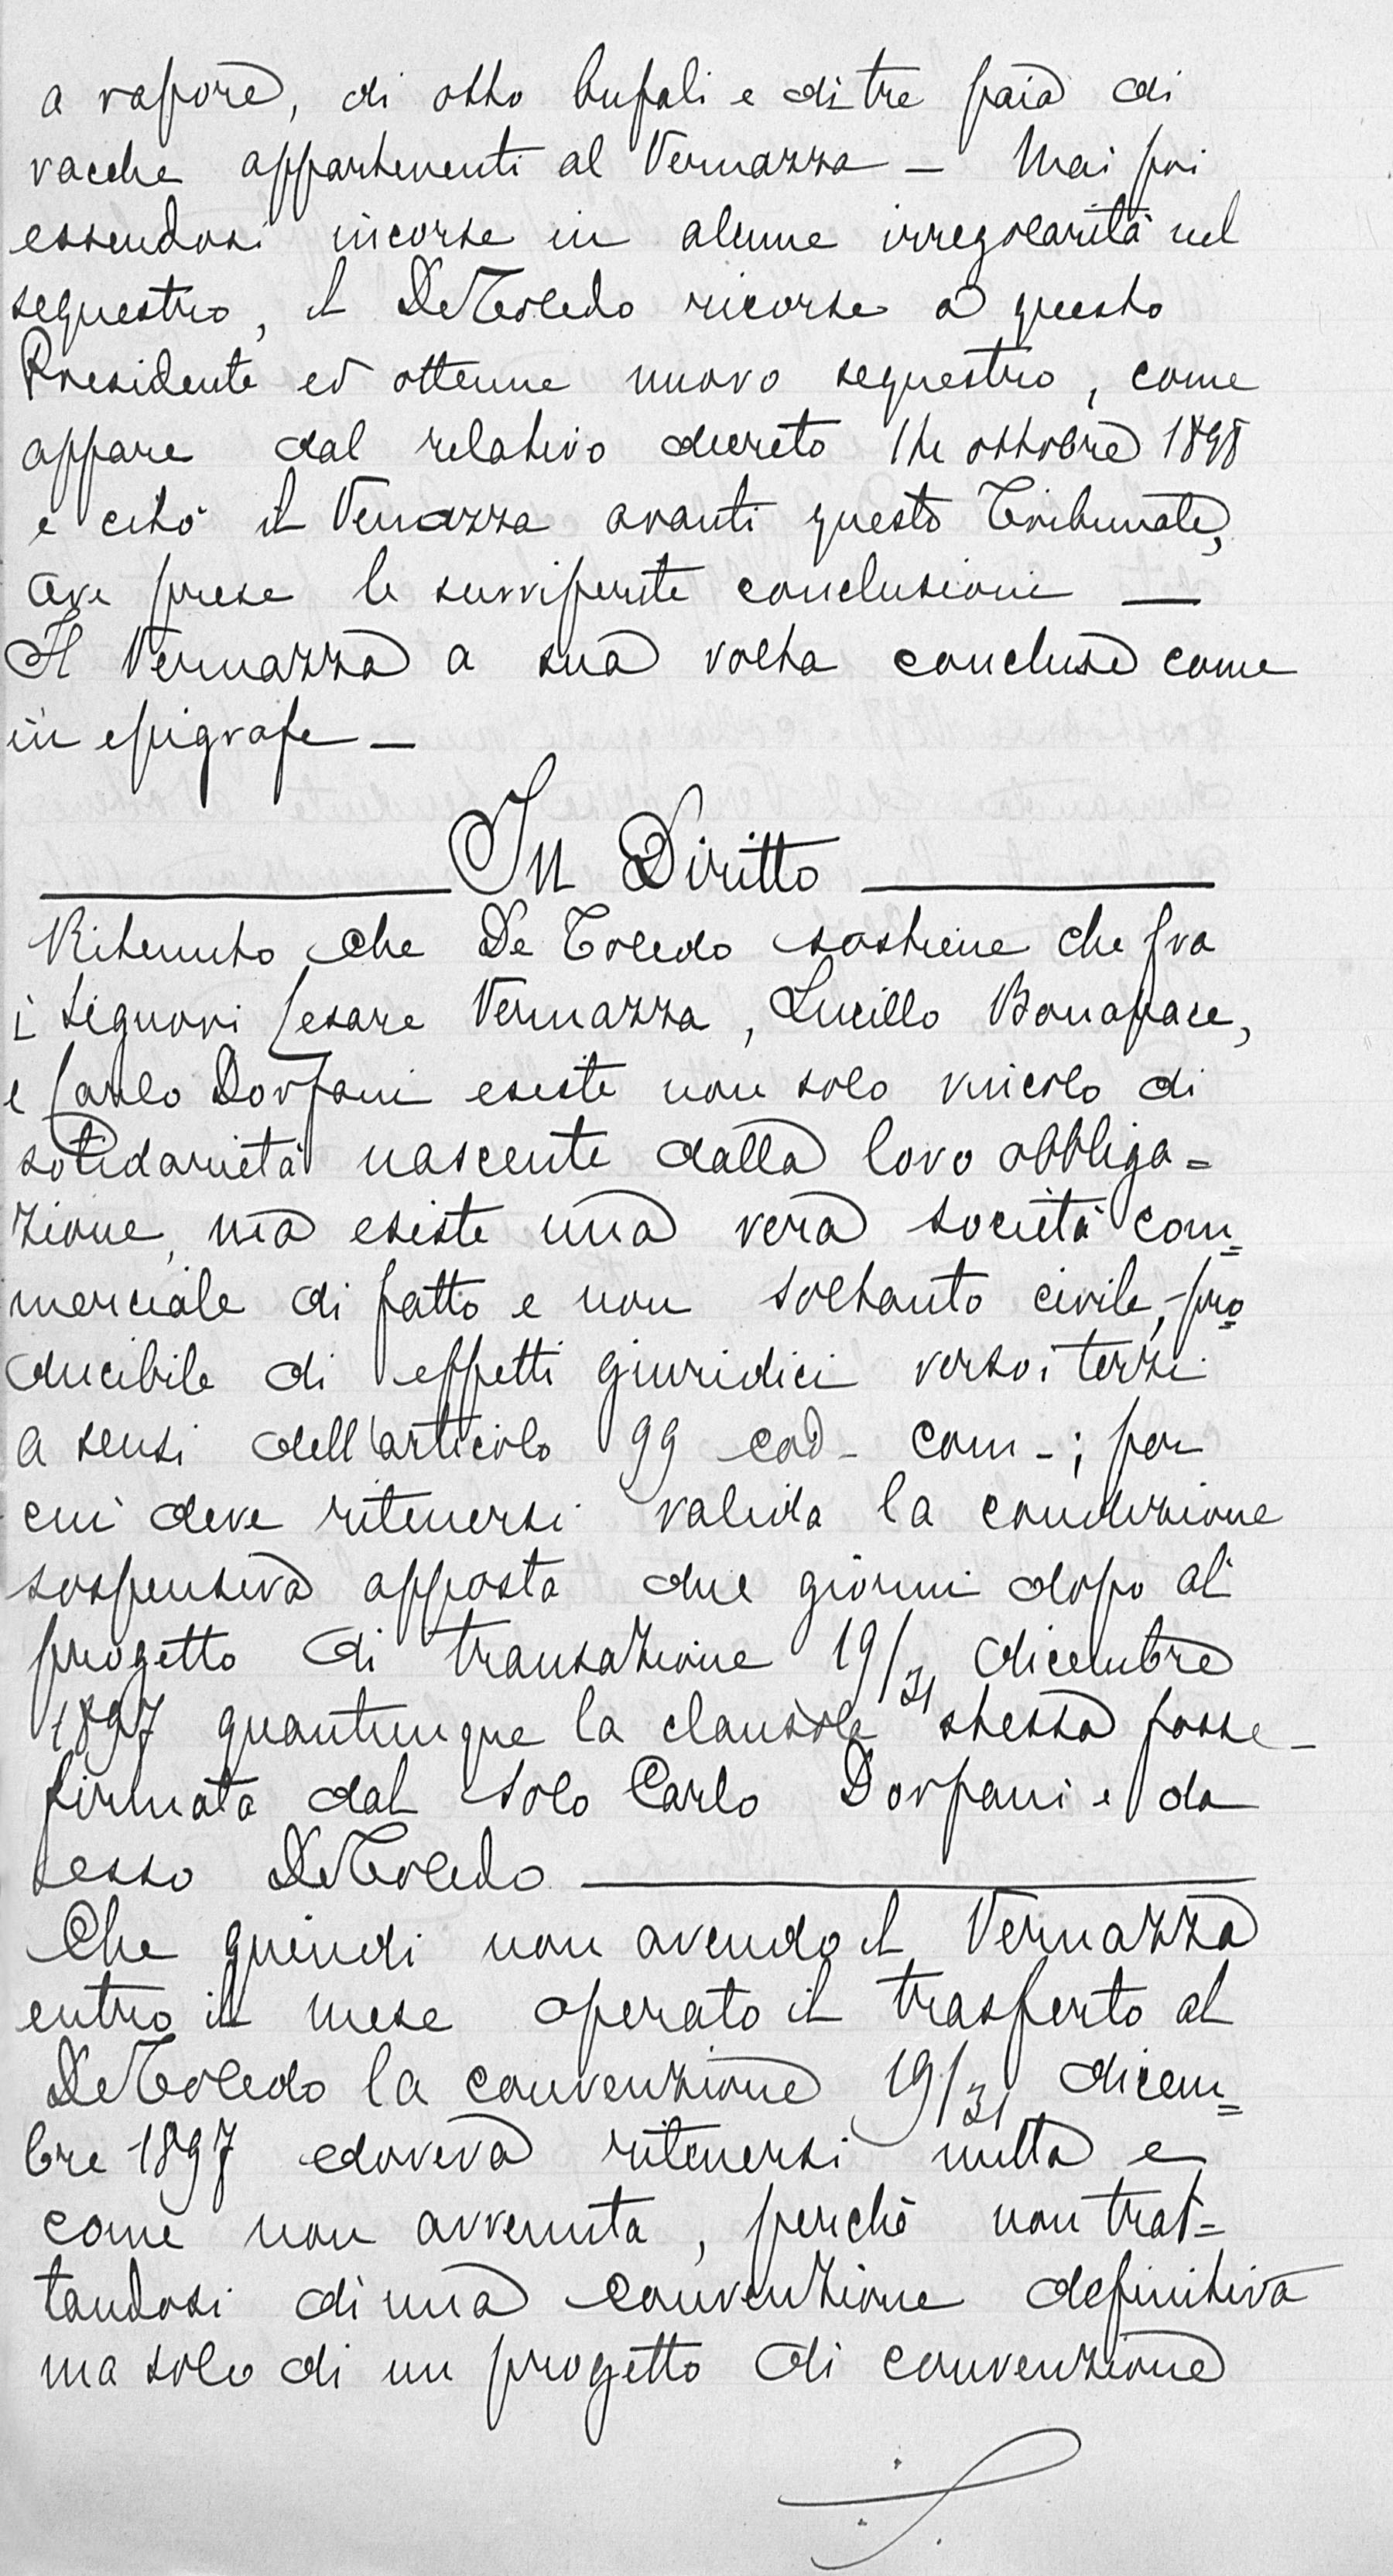 a vapore, di otto bufali e di tre paia di
vacche appartenenti al Vernazza — Mai poi
essendosi incorse in alcune irregolarità nel
sequestro, il De Toledo ricorse a questo
Presidente ed ottenne nuovo sequestro, come
appare dal relativo decreto 14 ottobre 1898
e citò il Vernazza avanti questo Tribunale,
ove prese le surriferite conclusioni —
Il Vernazza a sua volta concluse come
in epigrafe —
In Diritto
Ritenuto che De Toledo sostiene che fra
i signori Cesare Vernazza, Lucillo Bonapace,
e Carlo Dorfani esiste non solo vincolo di
solidarietà nascente dalla loro obbliga=
zione, ma esiste una vera società com=
merciale di fatto e non soltanto civile, pro=
ducibile di effetti giuridici verso i terzi
a sensi dell'articolo 99 cod- com-; per
cui deve ritenersi valida la condizione
sospensiva apposta due giorni dopo al
progetto di transazione 19/31 dicembre
1897 quantunque la clausola stessa fosse
firmata dal solo Carlo Dorfani e da
esso De Toledo
Che quindi non avendo il Vernazza
entro il mese operato il trasferto al
De Toledo la convenzione 19/31 dicem=
bre 1897 doveva ritenersi nulla e
come non avvenuta, perchè non trat=
tandosi di una convenzione definitiva
ma solo di un progetto di convenzione